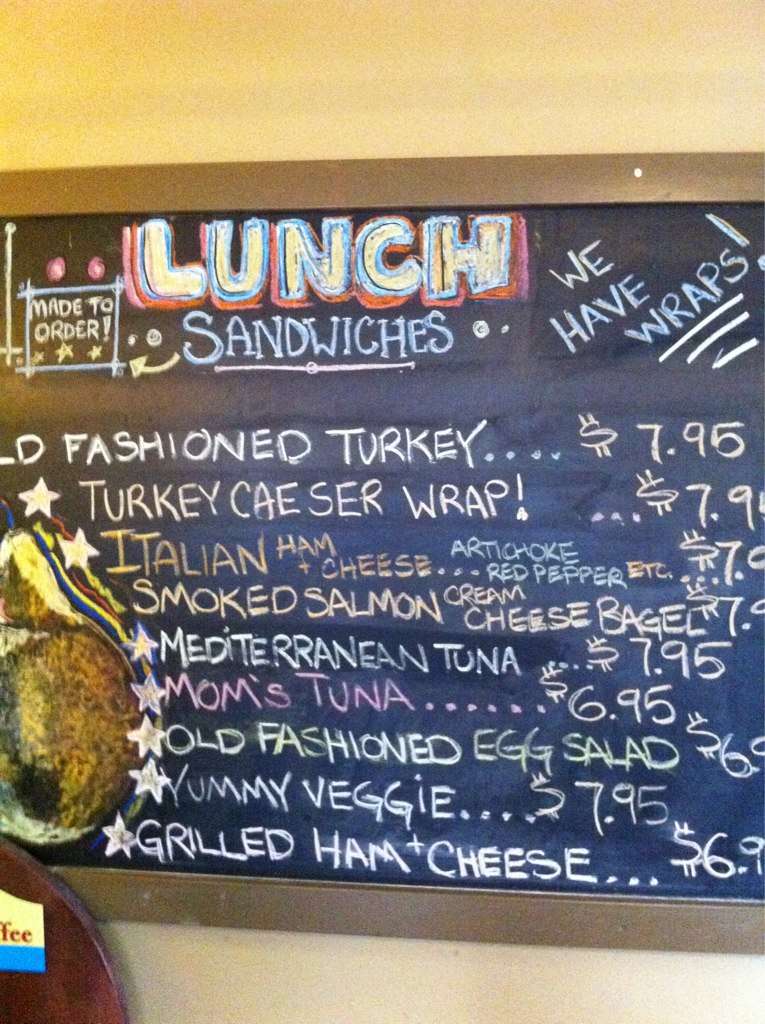 LUNCH
SANDWICHES
MADE TO
ORDER!
WE
HAVE
WRAPS!
LD FASHIONED TURKEY.... $7.95
TURKEY CAESER WRAP! ... $7.9
ITALIAN HAM + CHEESE... ARTICHOKE RED PEPPER ETC.... $7.9
SMOKED SALMON CREAM CHEESE BAGEL $7.9
MEDITERRANEAN TUNA ....$7.95
MOM'S TUNA.......$6.95
OLD FASHIONED EGG SALAD $6.9
YUMMY VEGGIE....$7.95
GRILLED HAM + CHEESE... $6.9
ffee